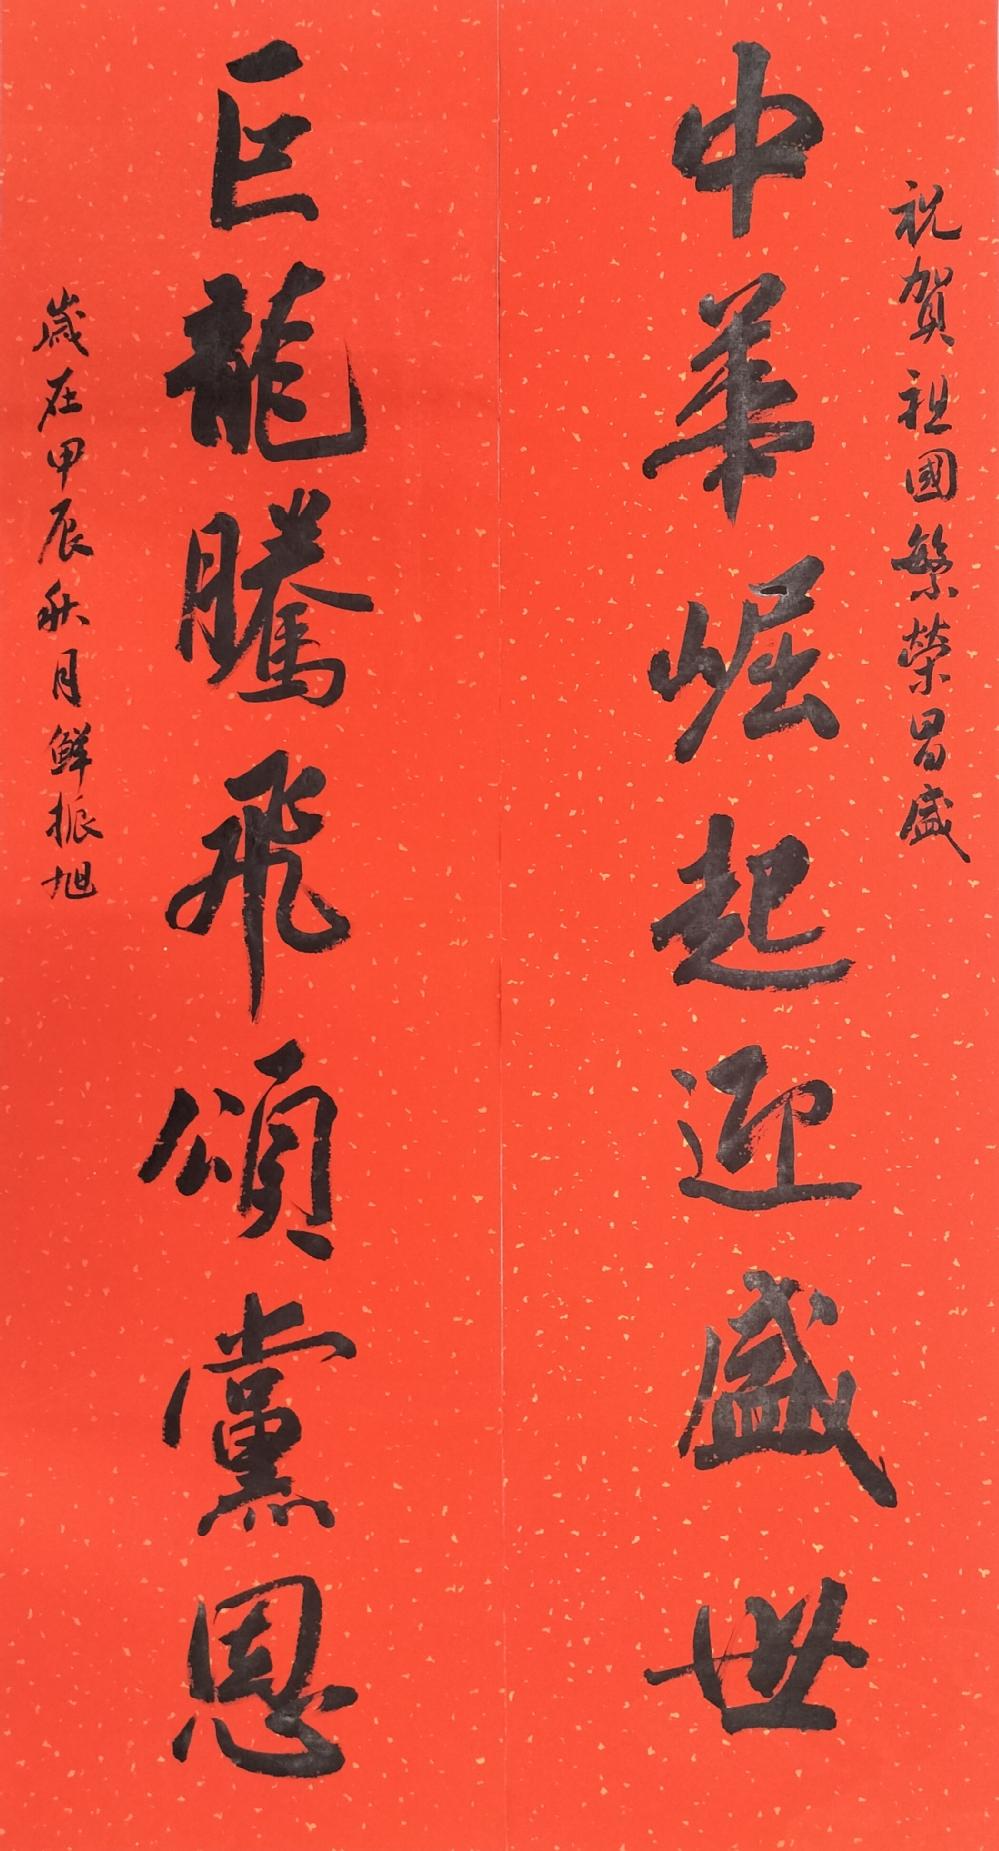 祝賀祖國繁榮昌盛
中華崛起迎盛世
巨龍騰飛頌黨恩
歲在甲辰秋月鮮振旭